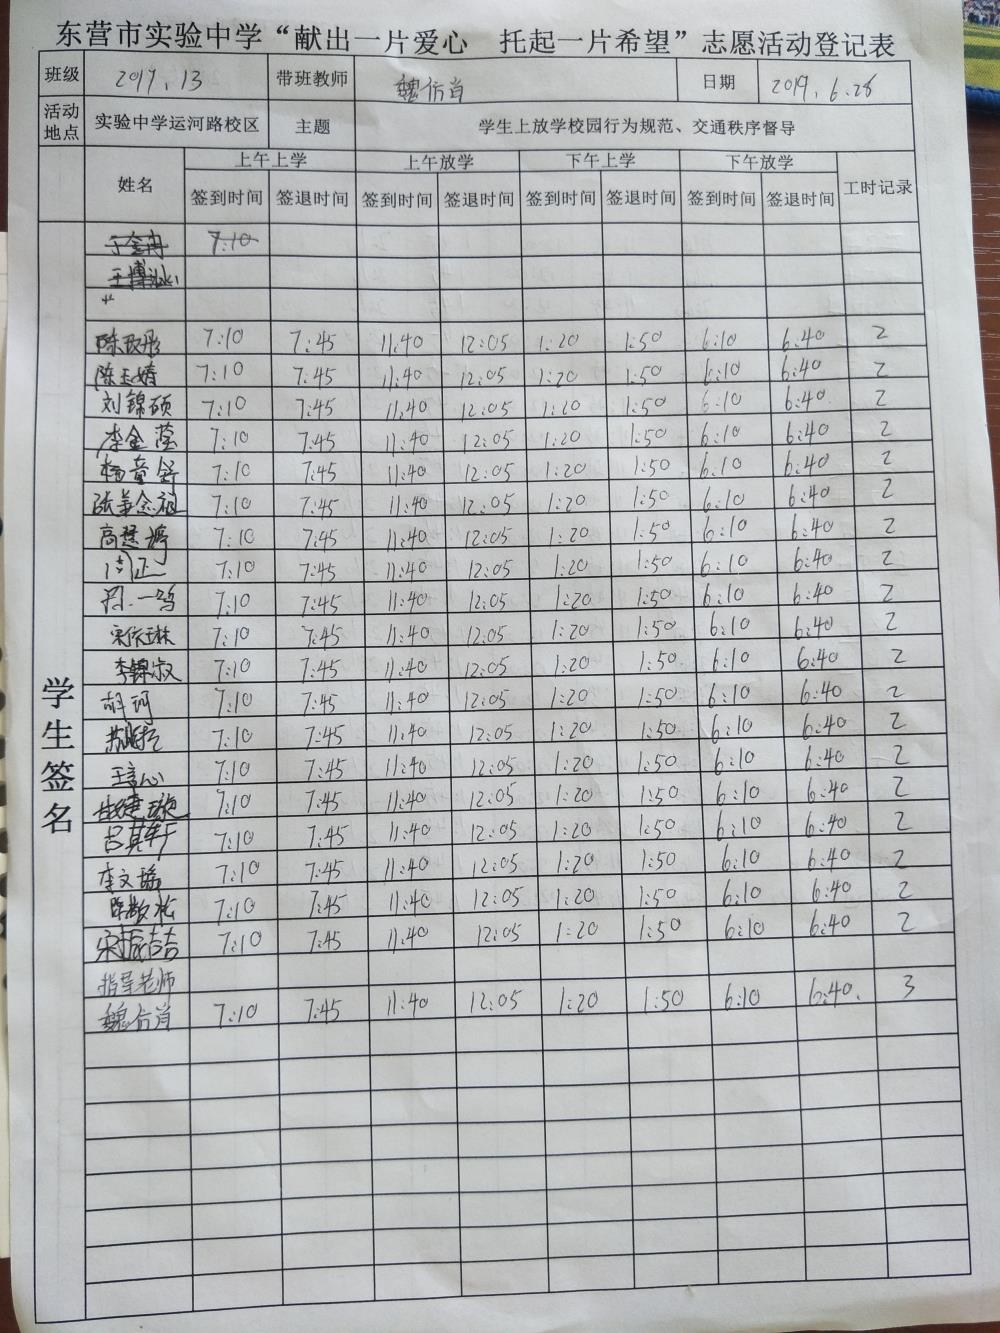 东营市实验中学“献出一片爱心 托起一片希望”志愿活动登记表
班级 2017.13 带班教师 魏俏肖 日期 2019.6.28
活动地点 实验中学运河路校区 主题 学生上放学校园行为规范、交通秩序督导
姓名 上午上学 上午放学 下午上学 下午放学 工时记录
签到时间 签退时间 签到时间 签退时间 签到时间 签退时间 签到时间 签退时间
学生签名
7:10
7:10 7:45 11:40 12:05 1:20 1:50 6:10 6:40 2
陈玉婧 7:10 7:45 11:40 12:05 1:20 1:50 6:10 6:40 2
刘锦硕 7:10 7:45 11:40 12:05 1:20 1:50 6:10 6:40 2
李金莹 7:10 7:45 11:40 12:05 1:20 1:50 6:10 6:40 2
7:10 7:45 11:40 12:05 1:20 1:50 6:10 6:40 2
7:10 7:45 11:40 12:05 1:20 1:50 6:10 6:40 2
高楚婷 7:10 7:45 11:40 12:05 1:20 1:50 6:10 6:40 2
周正 7:10 7:45 11:40 12:05 1:20 1:50 6:10 6:40 2
一鸣 7:10 7:45 11:40 12:05 1:20 1:50 6:10 6:40 2
宋依琳 7:10 7:45 11:40 12:05 1:20 1:50 6:10 6:40 2
李锦淑 7:10 7:45 11:40 12:05 1:20 1:50 6:10 6:40 2
胡珂 7:10 7:45 11:40 12:05 1:20 1:50 6:10 6:40 2
7:10 7:45 11:40 12:05 1:20 1:50 6:10 6:40 2
王言心 7:10 7:45 11:40 12:05 1:20 1:50 6:10 6:40 2
7:10 7:45 11:40 12:05 1:20 1:50 6:10 6:40 2
7:10 7:45 11:40 12:05 1:20 1:50 6:10 6:40 2
李文瑞 7:10 7:45 11:40 12:05 1:20 1:50 6:10 6:40 2
7:10 7:45 11:40 12:05 1:20 1:50 6:10 6:40 2
7:10 7:45 11:40 12:05 1:20 1:50 6:10 6:40 2
指导老师
魏俏肖 7:10 7:45 11:40 12:05 1:20 1:50 6:10 6:40. 3